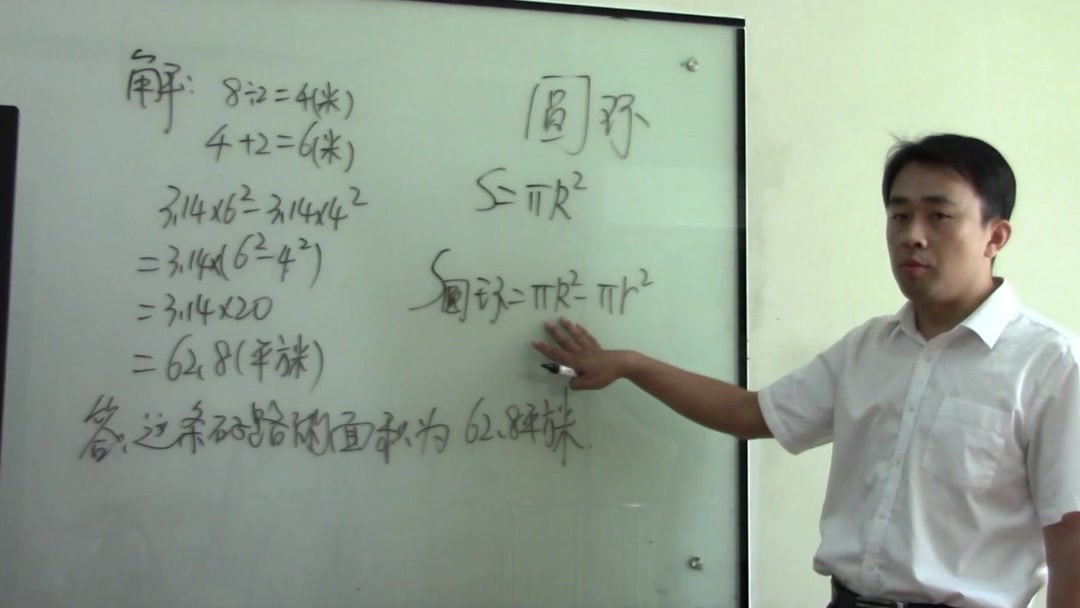 解: 8÷2=4(米)
4+2=6(米)
3.14×6²-3.14×4²
=3.14×(6²-4²)
=3.14×20
=62.8(平方米)
答:这条石子路的面积为62.8平方米.
圆环
S=πR²
S圆环=πR²-πr²